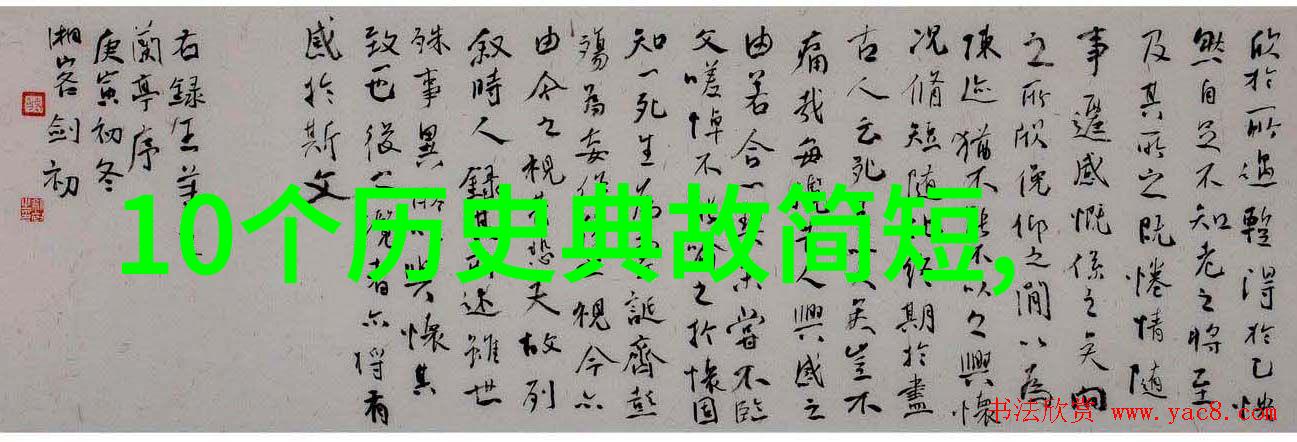 欣於所遇蹔得於己快
然自足不知老之將至
及其所之既惓情隨
事遷感慨係之矣向
之所欣俛仰之閒以為
陳迹猶不能不以之興懷
況脩短隨化終期於盡
古人云死生亦大矣豈不
痛哉每攬昔人興感之
由若合一契未嘗不臨
文嗟悼不能喻之於懷固
知一死生為虛誕齊彭
殤為妄作後之視今亦
由今之視昔悲夫故列
叙時人錄其所述雖世
殊事異所以興懷其
致一也後之覽者亦將有
感於斯文
右錄王羲
蘭亭序
庚寅初冬
湘客劍初
10个历史典故简短,
书法欣赏 www.yac8.com